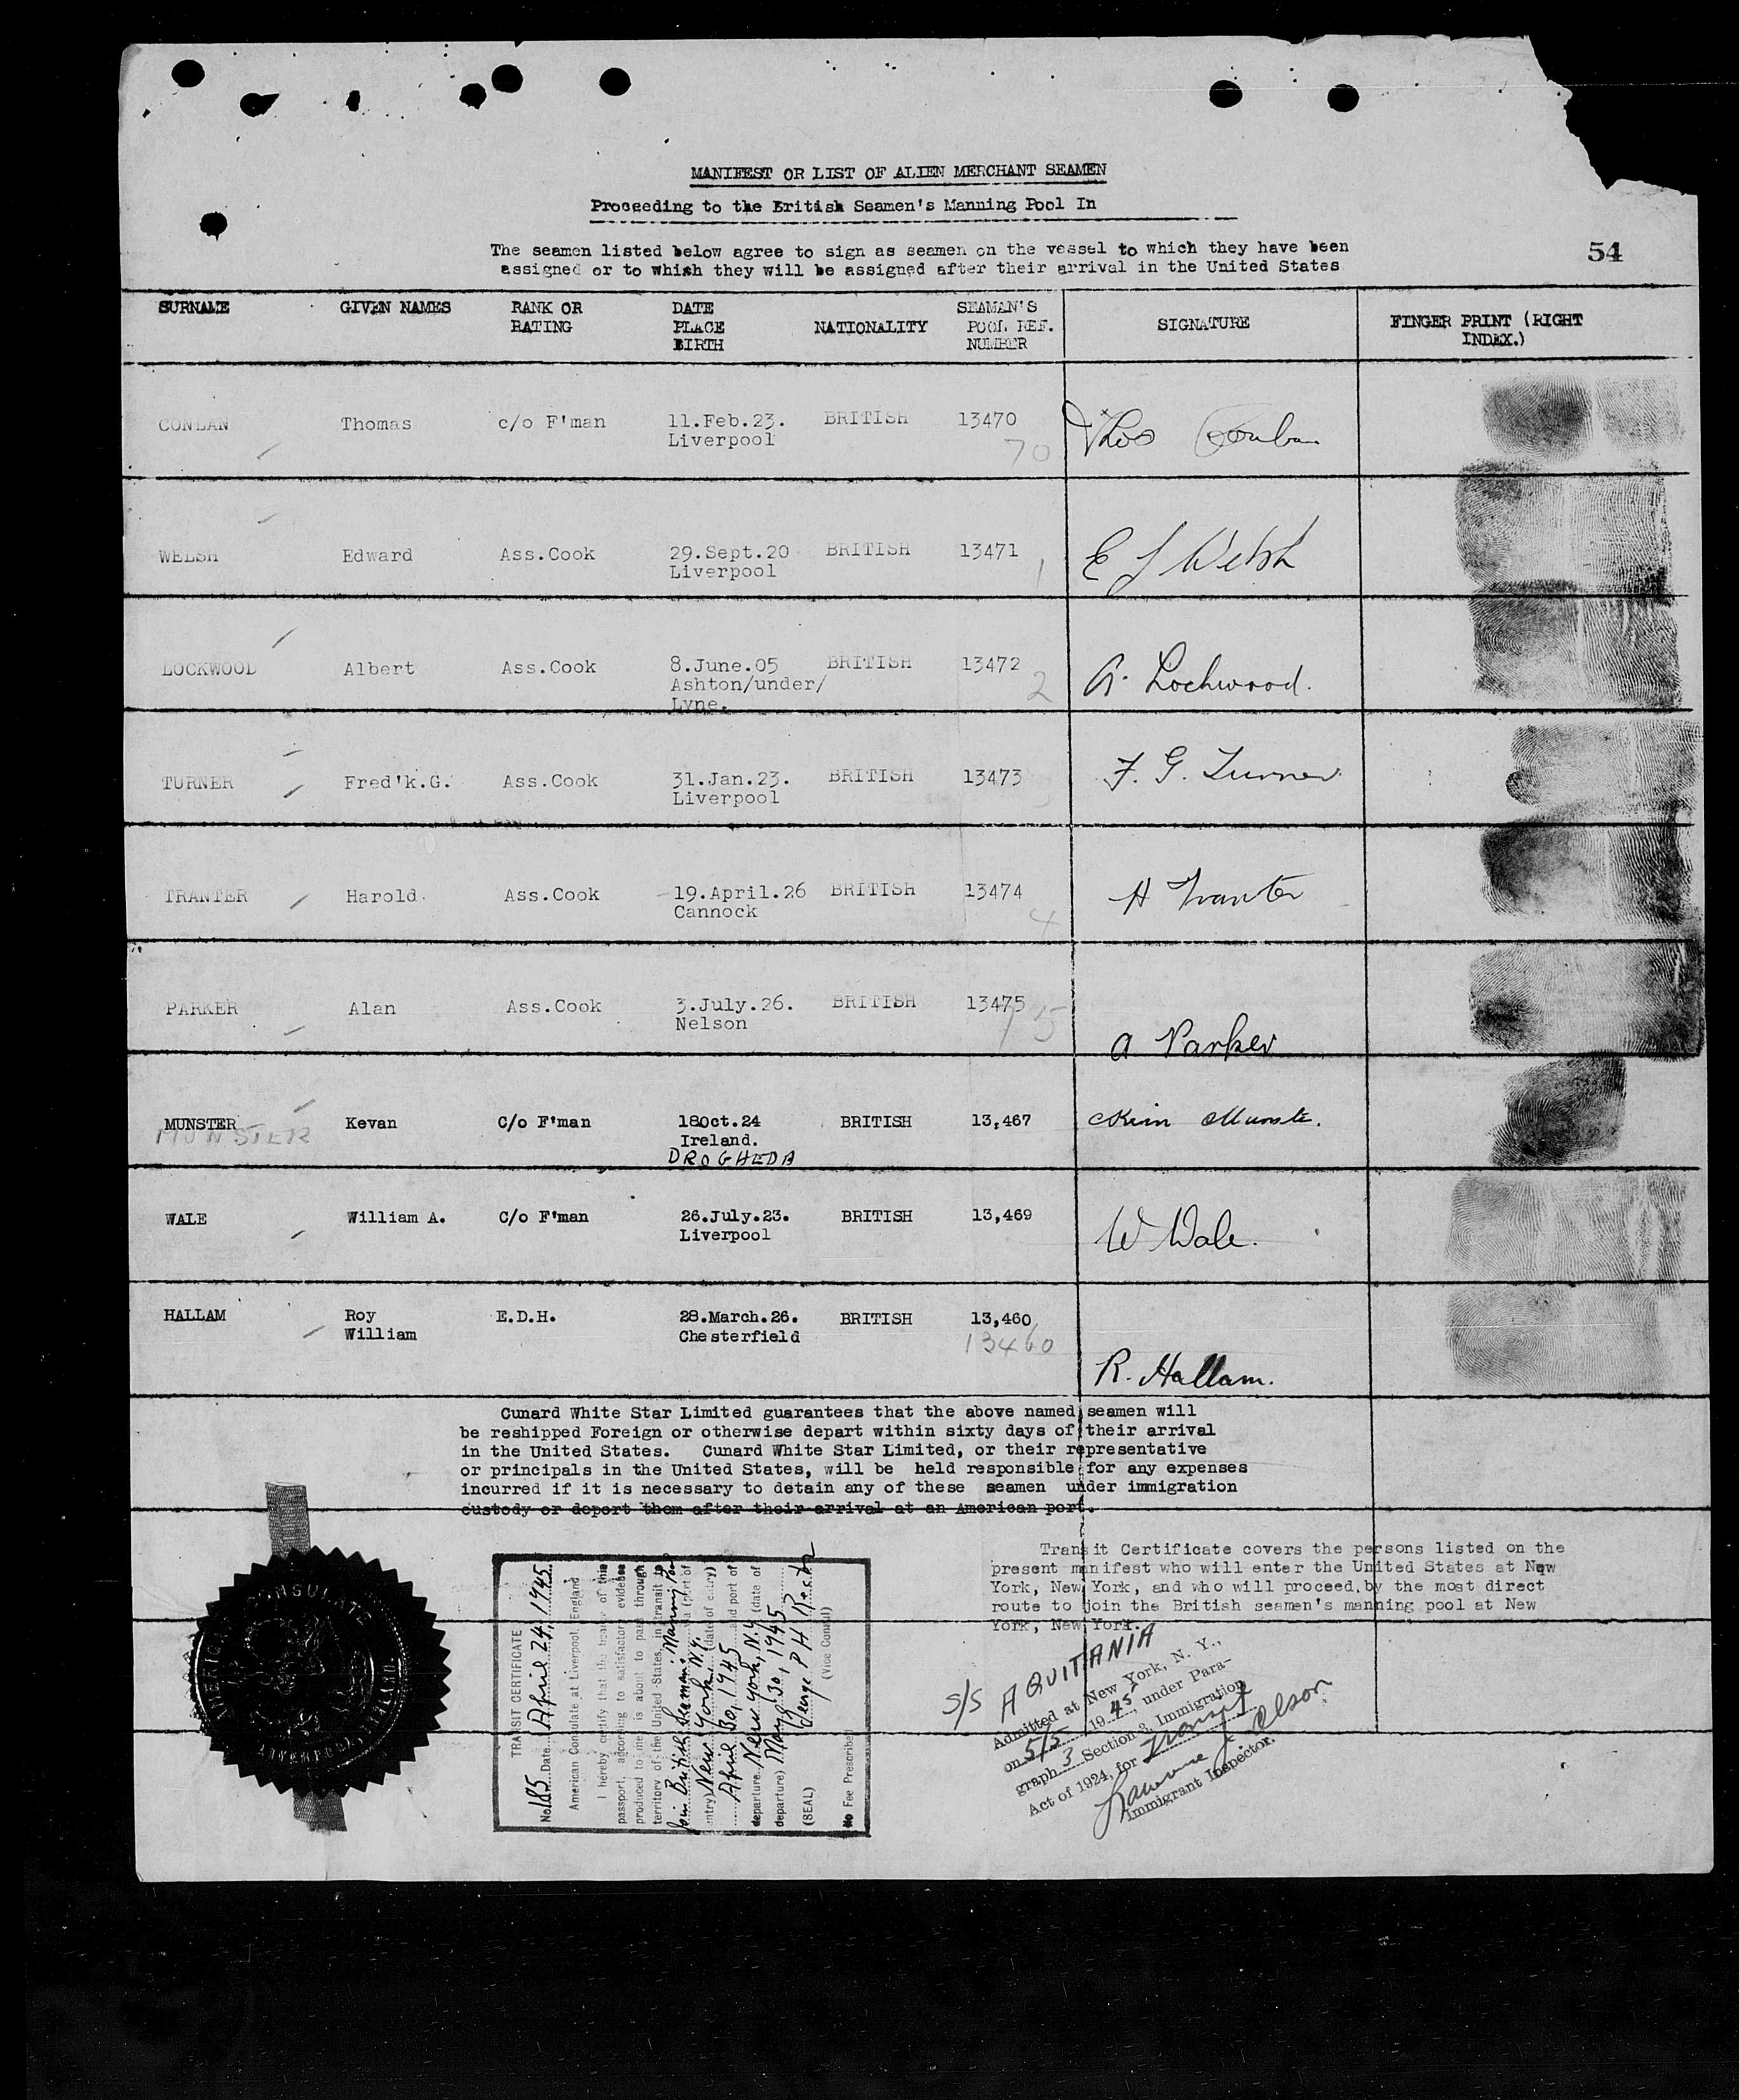 MANIFEST OR LIST OF ALIEN MERCHANT SEAMEN
Proceeding to the British Seamen's Manning Pool In
The seamen listed below agree to sign as seamen on the vessel to which they have been
assigned or to which they will be assigned after their arrival in the United States
54
SURNAME GIVEN NAMES RANK OR RATING DATE PLACE BIRTH NATIONALITY SEAMAN'S POOL REF. NUMBER SIGNATURE FINGER PRINT (RIGHT INDEX.)
CONLAN Thomas c/o F'man 11.Feb.23. BRITISH 13470 Thos Conlan
Liverpool
70
WELSH Edward Ass.Cook 29.Sept.20 BRITISH 13471 E J Welsh
Liverpool
1
LOCKWOOD Albert Ass.Cook 8.June.05 BRITISH 13472 A. Lockwood.
Ashton/under/
Lyne.
2
TURNER Fred'k.G. Ass.Cook 31.Jan.23. BRITISH 13473 F. G. Turner
Liverpool
TRANTER Harold. Ass.Cook 19.April.26 BRITISH 13474 H Tranter
Cannock
4
PARKER Alan Ass.Cook 3.July.26. BRITISH 13475 A Parker
Nelson
75
MUNSTER Kevan C/o F'man 18Oct.24 BRITISH 13,467 Munster.
MUNSTER
Ireland.
DROGHEDA
WALE William A. C/o F'man 26.July.23. BRITISH 13,469 W Wale.
Liverpool
HALLAM Roy E.D.H. 28.March.26. BRITISH 13,460
William Chesterfield
13460
R. Hallam.
Cunard White Star Limited guarantees that the above named seamen will
be reshipped Foreign or otherwise depart within sixty days of their arrival
in the United States. Cunard White Star Limited, or their representative
or principals in the United States, will be held responsible for any expenses
incurred if it is necessary to detain any of these seamen under immigration
custody or deport them after their arrival at an American port.
Transit Certificate covers the persons listed on the
present manifest who will enter the United States at New
York, New York, and who will proceed by the most direct
route to join the British seamen's manning pool at New
York, New York.
TRANSIT CERTIFICATE
No. 185 Date April 24, 1945
American Consulate at Liverpool, England
I hereby certify that the bearer of this
passport, according to satisfactory evidence
produced to me is about to pass through
territory of the United States in transit to
join British Seamen's Manning Pool via (port of
entry) New York, N.Y. (date of entry)
April 30, 1945 and port of
departure New York, N.Y. (date of
departure) May 30, 1945
George P H
(SEAL) (Vice Consul)
No Fee Prescribed
S/S AQUITANIA
Admitted at New York, N. Y.,
on 5/5 1945, under Para-
graph 3 Section 3, Immigration
Act of 1924, for Transit
Lawrence J. Olson
Immigrant Inspector.